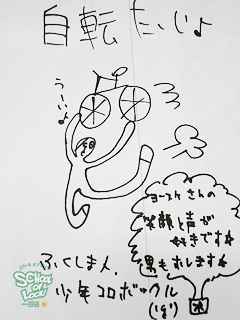 自転たいじょ
うーい♪
ヨースケさんの
笑顔と声が
好きです☆
SCHOOL
OF
LOCK!
ふくしま人.
少年コロボックル